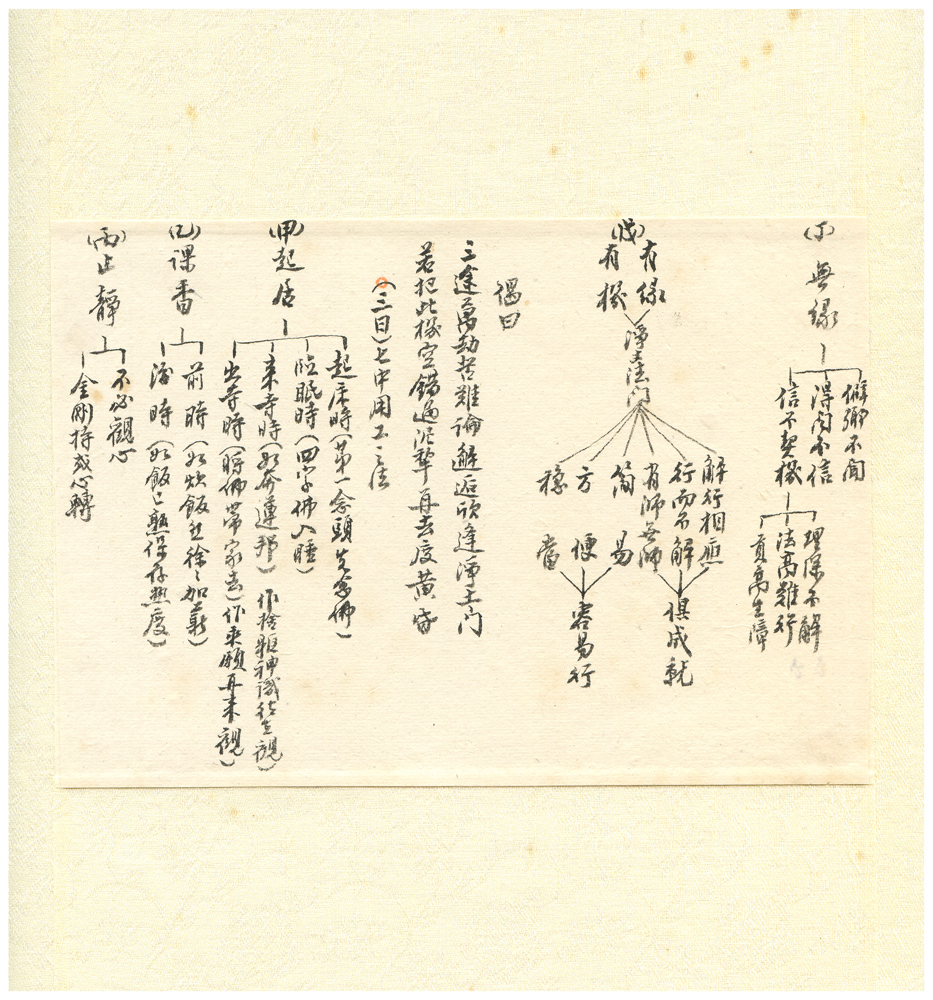 (丁)無緣
僻鄉不聞
得聞不信
信不契機
理深不解
法高難行
貢高生障
(戊)有緣
有機
淨土法門
解行相應
行而不解
有師無師
簡易
方便
穩當
俱成就
容易行
偈曰
三途萬劫苦難論邂逅欣逢淨土門
若把此機空錯過泥犂再去度黃昏
(三日)七中用工之法
(甲)起居
起床時(第一念頭先念佛)
臨眠時(四字佛入睡)
來寺時(如奔蓮邦)作捨軀神識往生觀
出寺時(將佛帶家去)作乘願再來觀)
(乙)課香
前時(如炊飯 徐々加薪)
後時(如飯已熟保存熱度)
(丙)止靜
不必觀心
金剛持或心轉